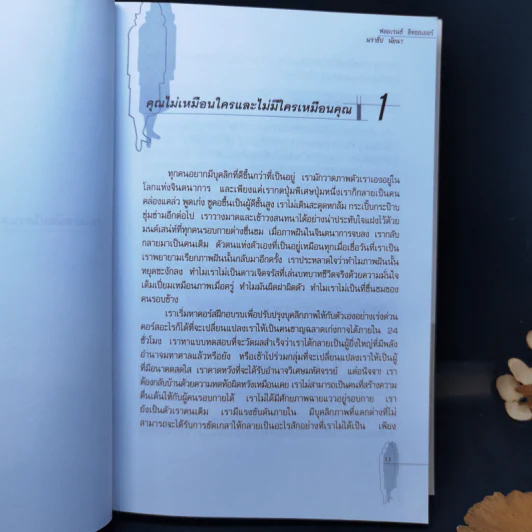 ฟลอเรนซ์ ลิทอเออร์
มราธัป นัยนา
คุณไม่เหมือนใครและไม่มีใครเหมือนคุณ 1
ทุกคนอยากมีบุคลิกที่ดีขึ้นกว่าที่เป็นอยู่ เรามักวาดภาพตัวเราเองอยู่ใน
โลกแห่งจินตนาการ และเพียงแค่เรากดปุ่มพิเศษปุ่มหนึ่งเราก็กลายเป็นคน
คล่องแคล่ว พูดเก่ง ชูคอขึ้นเป็นผู้ดีชั้นสูง เราไม่เดินสะดุดหกล้ม กระเบ็บกระป๊าบ
ซุ่มซ่ามอีกต่อไป เราวางมาดและเข้าวงสนทนาได้อย่างน่าประทับใจแฝงไว้ด้วย
มนต์เสน่ห์ที่ทุกคนรอบกายต่างชื่นชม เมื่อภาพฝันในจินตนาการจบลง เรากลับ
กลายมาเป็นตนเดิม ตัวตนแห่งตัวเองที่เป็นอยู่เหมือนทุกเมื่อเชื่อวันที่เราเป็น
เราพยายามเรียกภาพฝันนั้นกลับมาอีกครั้ง เราประหลาดใจว่าทำไมภาพฝันนั้น
หยุดชะงักลง ทำไมเราไม่เป็นดาวเจิดจรัสที่เล่นบทบาทชีวิตจริงด้วยความมั่นใจ
เต็มเปี่ยมเหมือนภาพเมื่อครู่ ทำไมมันผิดฝาผิดตัว ทำไมเราไม่เป็นที่ชื่นชมของ
คนรอบข้าง
เราเริ่มหาคอร์สฝึกอบรมเพื่อปรับปรุงบุคลิกภาพให้กับตัวเองอย่างเร่งด่วน
คอร์สอะไรก็ได้ที่จะเปลี่ยนแปลงเราให้เป็นคนชาญฉลาดเก่งกาจได้ภายใน 24
ชั่วโมง เราหาแบบทดสอบที่จะวัดผลสำเร็จว่าเราได้กลายเป็นผู้ยิ่งใหญ่ที่มีพลัง
อำนาจมหาศาลแล้วหรือยัง หรือเข้าไปร่วมกลุ่มที่จะเปลี่ยนแปลงเราให้เป็นผู้
ที่มีอนาคตสดใส เราคาดหวังที่จะได้รับอำนาจวิเศษมหัศจรรย์ แต่อนิจจา เรา
ต้องกลับบ้านด้วยความหดห่อผิดหวังเหมือนเคย เราไม่สามารถเป็นคนที่สร้างความ
ตื่นเต้นให้กับผู้คนรอบกายได้ เราไม่ได้มีศักยภาพฉายแววอยู่รอบกาย เรา
ยังเป็นตัวเราคนเดิม เรามีแรงขับดันภายใน มีบุคลิกภาพที่แตกต่างที่ไม่
สามารถจะได้รับการขัดเกลาให้กลายเป็นอะไรสักอย่างที่เราไม่ได้เป็น เพียง
11